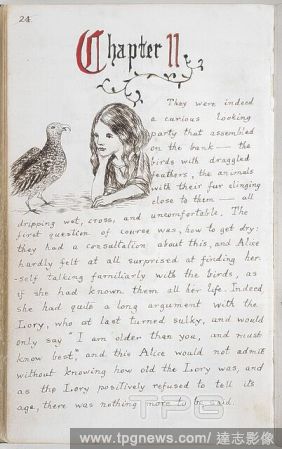 24
Chapter II
They were indeed
a curious looking
party that assembled
on the bank — the
birds with draggled
feathers, the animals
with their fur clinging
close to them — all
dripping wet, cross, and uncomfortable. The
first question of course was, how to get dry:
they had a consultation about this, and Alice
hardly felt at all surprised at finding her-
-self talking familiarly with the birds, as
if she had known them all her life. Indeed
she had quite a long argument with the
Lory, who at last turned sulky, and would
only say "I am older than you, and must
know best," and this Alice would not admit
without knowing how old the Lory was, and
as the Lory positively refused to tell its
age, there was nothing more to be said.
TPG
www.tpgnews.com/達志影像